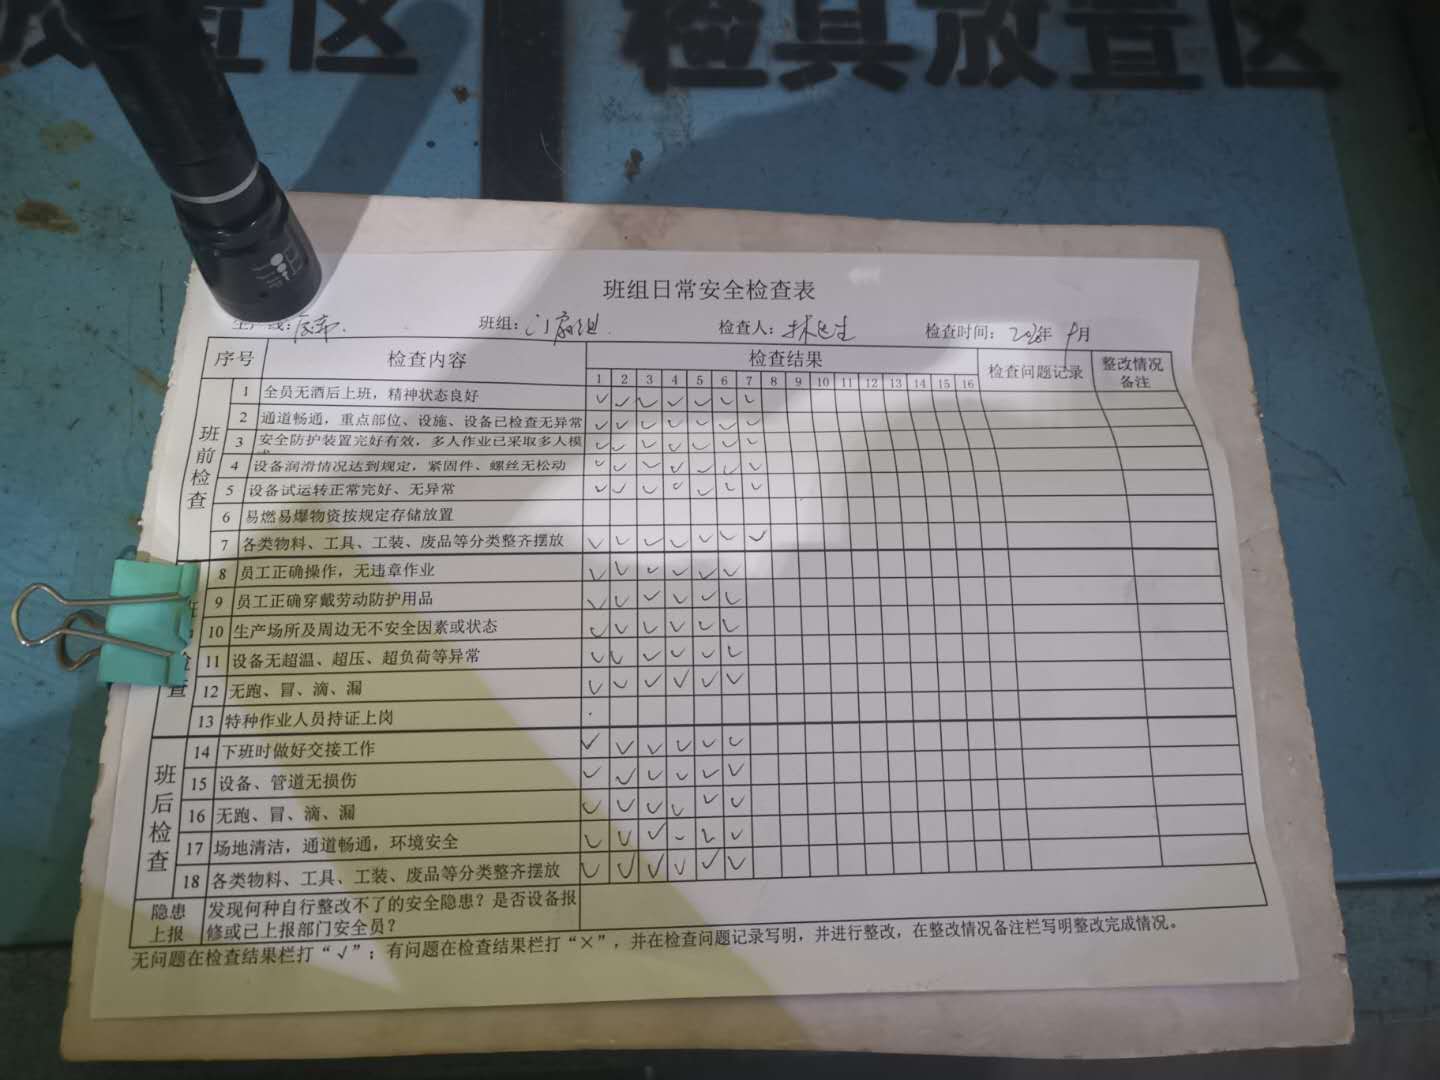 放置区 检具放置区
班组日常安全检查表
生产线: 班组: 门扇组 检查人: 检查时间: 年 月
序号 检查内容 检查结果 检查问题记录 整改情况备注
1 2 3 4 5 6 7 8 9 10 11 12 13 14 15 16
班前检查
1 全员无酒后上班，精神状态良好 ✓ ✓ ✓ ✓ ✓ ✓ ✓
2 通道畅通，重点部位、设施、设备已检查无异常 ✓ ✓ ✓ ✓ ✓ ✓ ✓
3 安全防护装置完好有效，多人作业已采取多人模 ✓ ✓ ✓ ✓ ✓ ✓ ✓
4 设备润滑情况达到规定，紧固件、螺丝无松动 ✓ ✓ ✓ ✓ ✓ ✓ ✓
5 设备试运转正常完好、无异常 ✓ ✓ ✓ ✓ ✓ ✓ ✓
6 易燃易爆物资按规定存储放置
7 各类物料、工具、工装、废品等分类整齐摆放 ✓ ✓ ✓ ✓ ✓ ✓ ✓
查
8 员工正确操作，无违章作业 ✓ ✓ ✓ ✓ ✓ ✓
9 员工正确穿戴劳动防护用品 ✓ ✓ ✓ ✓ ✓ ✓
10 生产场所及周边无不安全因素或状态 ✓ ✓ ✓ ✓ ✓ ✓
11 设备无超温、超压、超负荷等异常 ✓ ✓ ✓ ✓ ✓ ✓
12 无跑、冒、滴、漏 ✓ ✓ ✓ ✓ ✓ ✓
13 特种作业人员持证上岗
班后检查
14 下班时做好交接工作 ✓ ✓ ✓ ✓ ✓ ✓
15 设备、管道无损伤 ✓ ✓ ✓ ✓ ✓ ✓
16 无跑、冒、滴、漏 ✓ ✓ ✓ ✓ ✓ ✓
17 场地清洁，通道畅通，环境安全 ✓ ✓ ✓ ✓ ✓ ✓
18 各类物料、工具、工装、废品等分类整齐摆放 ✓ ✓ ✓ ✓ ✓ ✓
隐患上报 发现何种自行整改不了的安全隐患？是否设备报
修或已上报部门安全员？
无问题在检查结果栏打“√”；有问题在检查结果栏打“×”，并在检查问题记录写明，并进行整改，在整改情况备注栏写明整改完成情况。